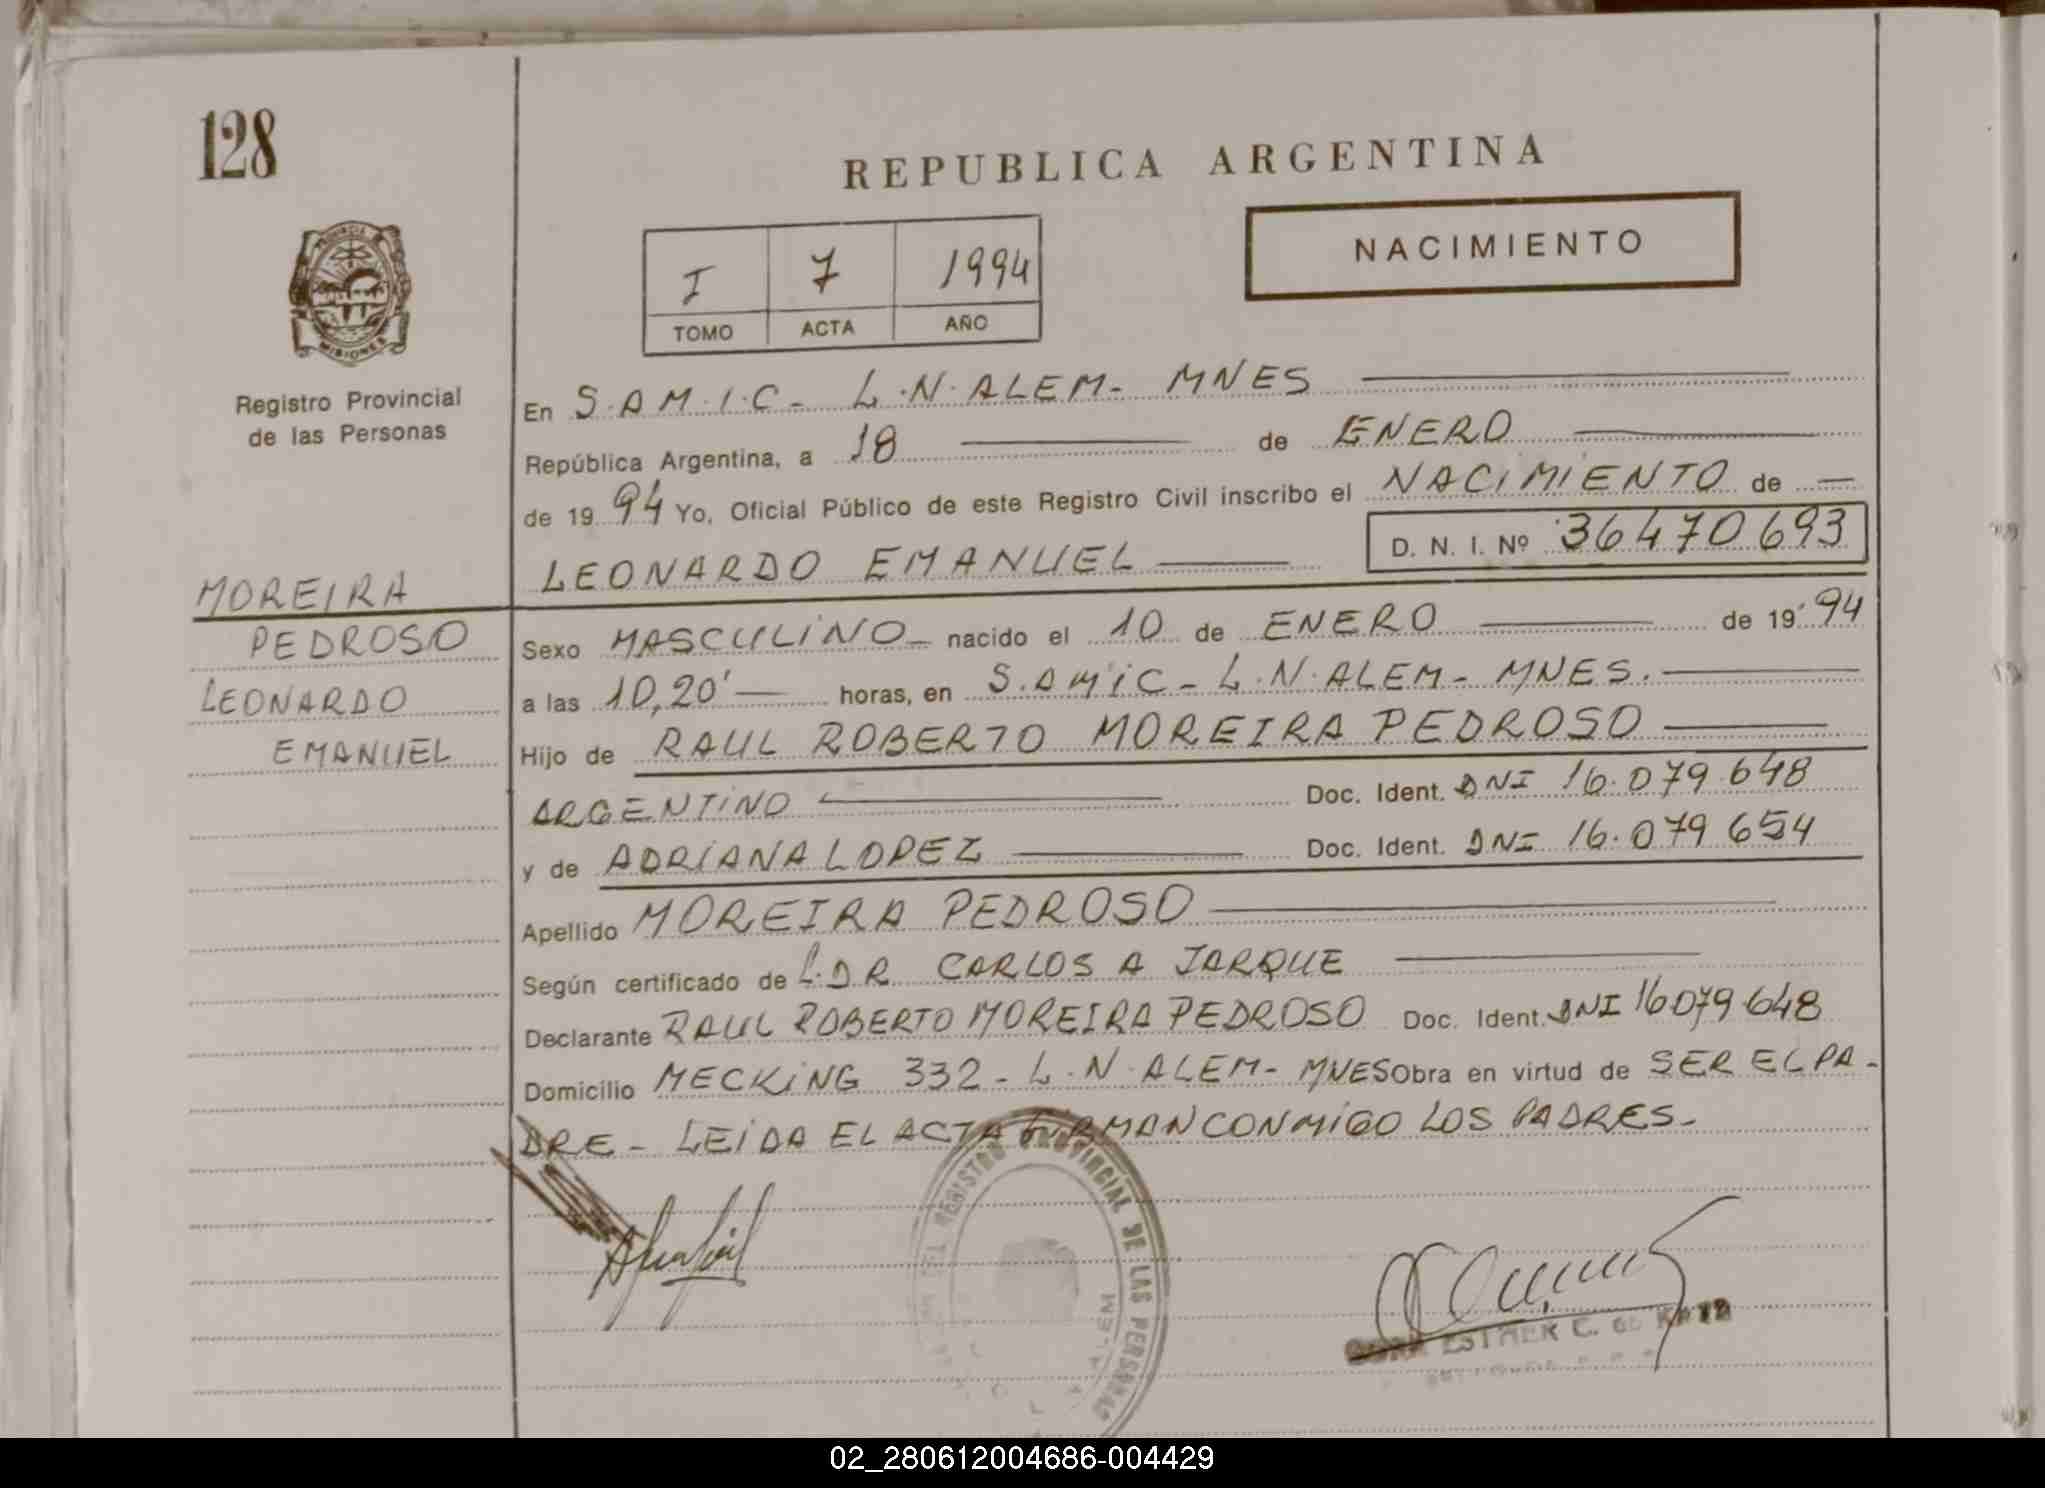 128
REPUBLICA ARGENTINA
NACIMIENTO
I 7 1994
TOMO ACTA AÑO
PROVINCIA DE
MISIONES
Registro Provincial
de las Personas
En S.A.M.I.C- L.N.ALEM- MNES
República Argentina, a 18 de ENERO
de 1994 Yo, Oficial Público de este Registro Civil inscribo el NACIMIENTO de
LEONARDO EMANUEL D. N. I. Nº 36470693
MOREIRA
PEDROSO
LEONARDO
EMANUEL
Sexo MASCULINO nacido el 10 de ENERO de 1994
a las 10,20' horas, en S.AMIC- L.N.ALEM- MNES.
Hijo de RAUL ROBERTO MOREIRA PEDROSO
ARGENTINO Doc. Ident. DNI 16.079.648
y de ADRIANA LOPEZ Doc. Ident. DNI 16.079654
Apellido MOREIRA PEDROSO
Según certificado de L.DR CARLOS A JARQUE
Declarante RAUL ROBERTO MOREIRA PEDROSO Doc. Ident. DNI 16079648
Domicilio MECKING 332- L.N.ALEM- MNES Obra en virtud de SER EL PA-
DRE- LEIDA EL ACTA FIRMAN CONMIGO LOS PADRES-
DEL REGISTRO PROVINCIAL DE LAS PERSONAS
ALEM
ESTHER C. de
02_280612004686-004429